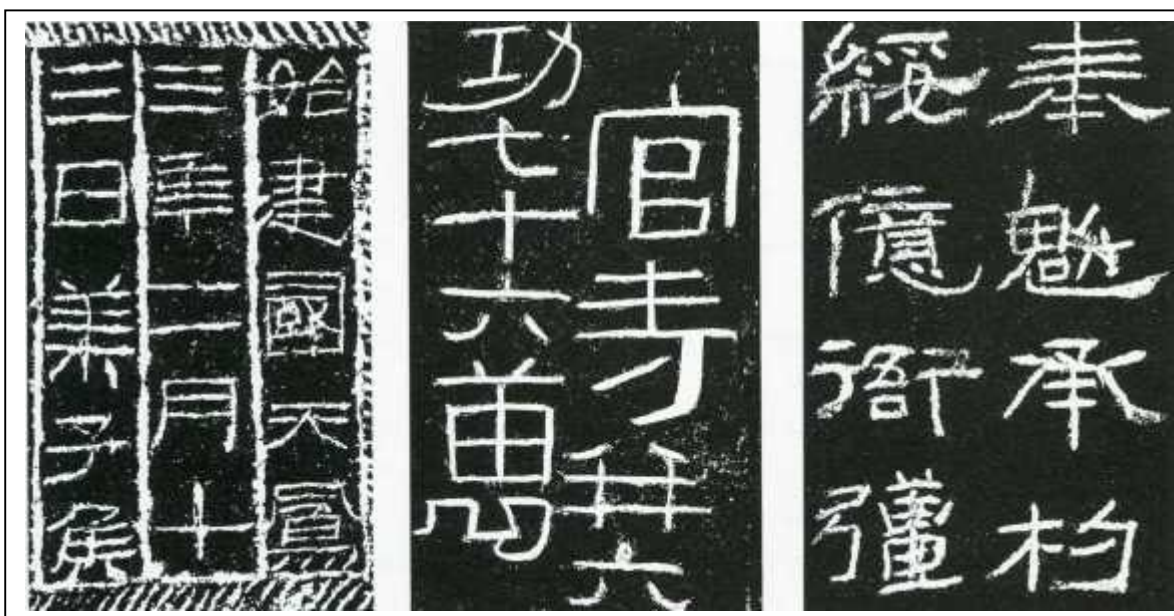 始建國天鳳
三年二月十
三日萊子侯
官寺并六
功七十六萬
奉魁承杓
綏億衙彊